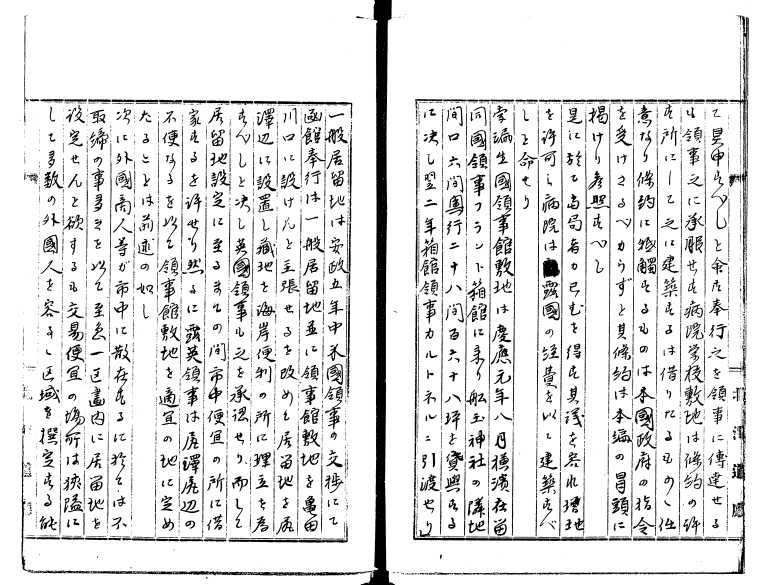 て具申すべしと命じ奉行之を領事に傳達せる
も領事之に承服せず病院学校敷地は條約の許
す所にして之に建築するは借りたるものゝ任
意なり條約に抵觸するものは本國政府の指令
を受けさるべからずと其條約は本編の冒頭に
掲けり参照すべし
是に於て当局者か已むを得ず其議を容れ増地
を許可し病院は露國の経費を以て建築すべ
しと命せり
孛漏生國領事館敷地は慶應元年八月横濱在留
同國領事ブラント箱館に来り船玉神社の隣地
間口六間奥行二十八間百六十八坪を貸與する
に決し翌二年箱館領事ガルトネルニ引渡せり
北海道廳
一般居留地は安政五年中米國領事の交渉にて
函館奉行は一般居留地並に領事館敷地を亀田
川口に設けんと主張せるを改めて居留地を尻
澤辺に設置し藏地を海岸便利の所に埋立を為
すべしと決し英國領事も之を承認せり而して
居留地設定に至るまての間市中便宜の所に借
家するを許せり然るに露英領事は尻澤辺の
不便なるを以て領事館敷地を適宜の地に定め
たることは前述の如し
次に外國商人等が市中に散在するに於ては不
取締の事多きを以て至急一区畫内に居留地を
設定せんと欲するも交易便宜の場所は狭隘に
して多数の外國人を容るゝ区域を撰定する能